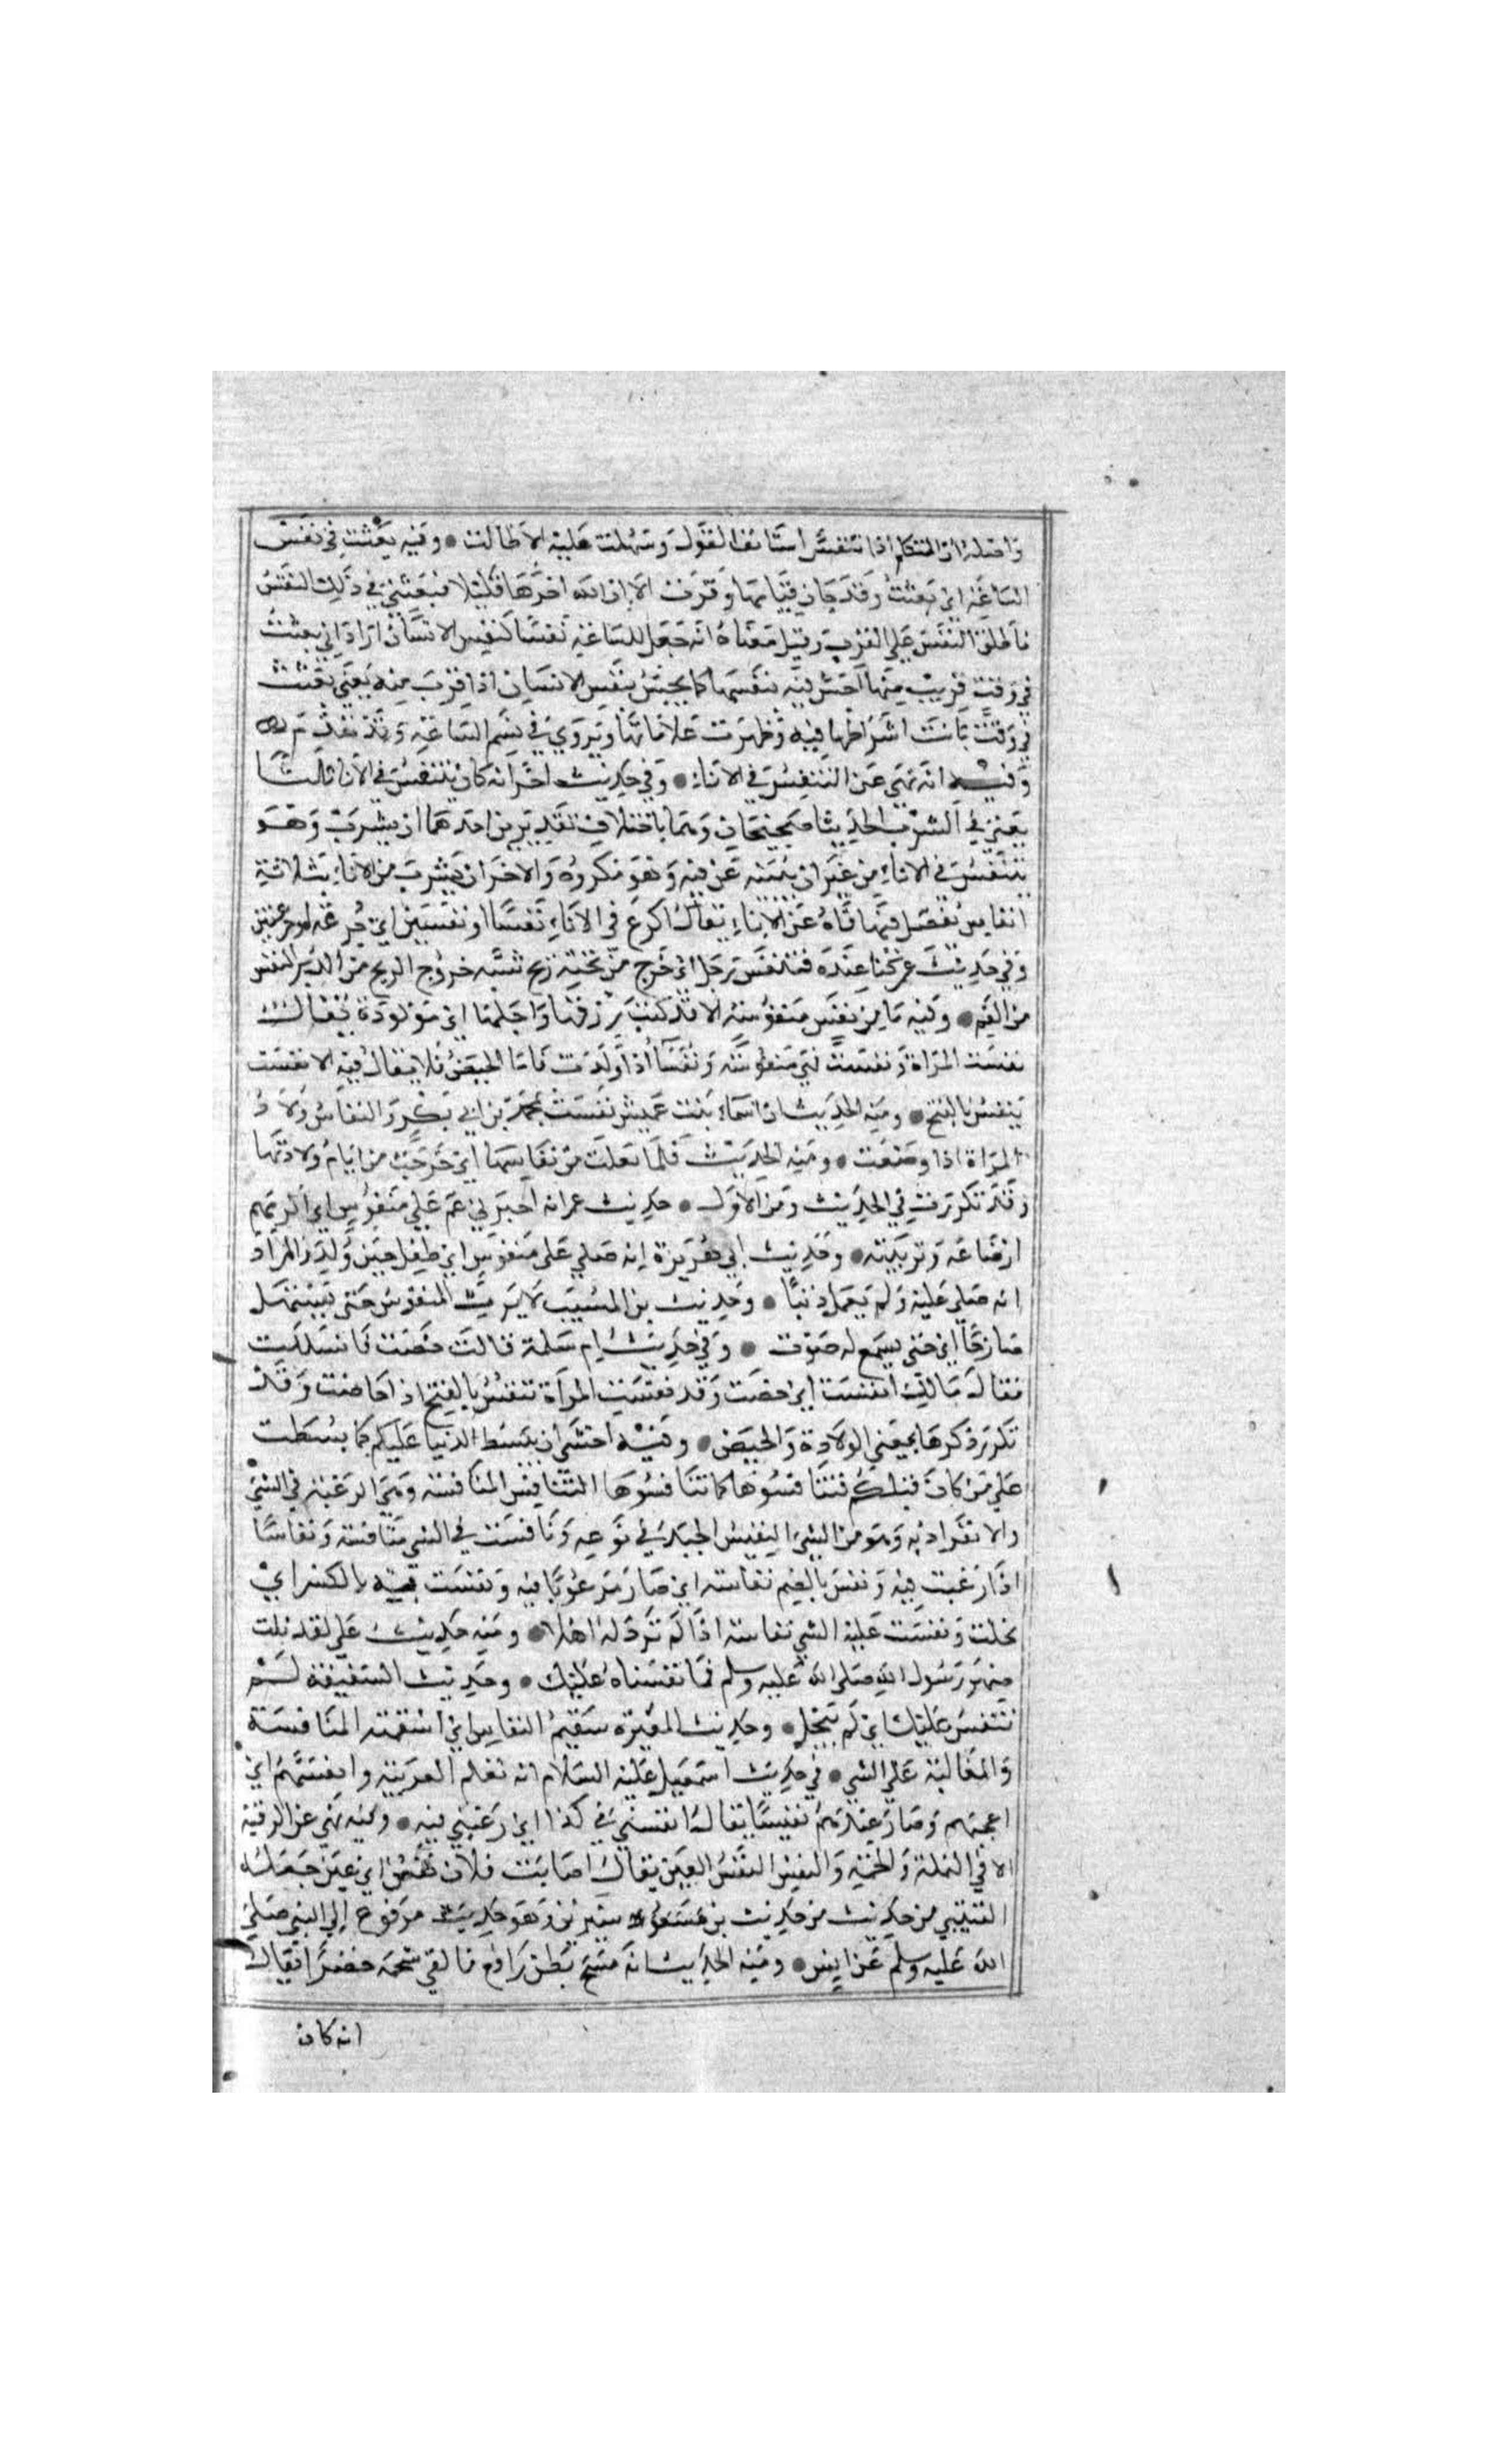 واصله ان المتكلم اذا تنفس استانف القول وسهلت عليه الاطالت • وفيه بعثت في نفس
الساعة اي بعثت وقد حان قيامها وقربت الا ان الله اخرها قليلا فبعثني في ذلك النفس
فاطلق النفس على القرب وقيل معناه انه جعل للساعة نفسا كنفس الانسان اراد اني بعثت
في وقت قريب منها احس فيه بنفسها كما يحس بنفس الانسان اذا قرب منه يعني بعثت
في وقت بانت اشراطها فيه وظهرت علاماتها ويروي في نسم الساعة وقد تقدم
وفيه انه نهى عن التنفس في الاناء • وفي حديث اخر انه كان يتنفس في الانا ثلاثا
يعني في الشرب الحديثا صحيحان وهما باختلاف تقديرين احدهما ان يشرب وهو
يتنفس في الاناء من غير ان يبينه عن فيه وهو مكروه والاخر ان يشرب من الاناء بثلاثة
انفاس يفصل فيها فاه عن الاناء يقال اكرع في الاناء نفسا او نفسين اي جرعة او جرعتين
وفي حديث عمر كنا عنده فتنفس رجل اي خرج من تحته ريح شبه خروج الريح من الدبر بالنفس
من الفم • وفيه ما من نفس منفوسة الا قد كتب رزقها واجلها اي مولودة يقال
نفست المراة ونفست فهي منفوسة ونفسا اذا ولدت فاما الحيض فلا يقال فيه الا نفست
بنفس بالفتح • ومنه الحديث ان اسماء بنت عميس نفست بمحمد بن ابي بكر والنفاس ولاد
المراة اذا وضعت • ومنه الحديث فلما تعلت من نفاسها اي خرجت من ايام ولادتها
وقد تكررت في الحديث ومن الاول • حديث عمر انه اجبر بني عم علي منفوس اي الزمهم
ارضاعه وتربيته • وحديث ابي هريرة انه صلي على منفوس اي طفل حين ولد والمراد
انه صلي عليه ولم يعمل ذنبا • وحديث بن المسيب لا يرث المنفوس حتى يستهل
صارخا اي حتى يسمع له صوت • وفي حديث ام سلمة قالت حضت فانسللت
فقال مالك انفست اي احضت وقد نفست المراة تنفس بالفتح اذا حاضت وقد
تكرر ذكرها بمعني الولادة والحيض • وفيه اخشى ان يبسط الدنيا عليكم كما بسطت
علي من كان قبلكم فتنافسوها كما تنافسوها التنافس المنافسة وهي الرغبة في الشي
والانفراد به وهو من الشي النفيس الجيد في نوعه ونافست في الشي منافسة ونفاسا
اذا رغبت فيه ونفس بالضم نفاسة اي صار مرغوبا فيه ونفست به بالكسر اي
بخلت ونفست عليه الشي نفاسة اذا لم تره له اهلا • ومنه حديث علي لقد نلت
صهر رسول الله صلى الله عليه وسلم فما نفسناه عليك • وحديث السقيفة لم
ننفس عليك اي لم نبخل • وحديث المغيرة سقيم النفاس اي اسقمته المنافسة
والمغالبة علي الشي • في حديث اسمعيل عليه السلام انه تعلم العربية وانفسهم اي
اعجبهم وصار عندهم نفيسا يقال انفسني في كذا اي رغبني فيه • وفيه نهي عن الرقية
الا في النملة والحمة والنفس النفس العين يقال اصابت فلان نفس اي عين جعله
القتيبي من حديث من حديث بن سيرين وهو حديث مرفوع الي النبي صلي
الله عليه وسلم عن انس • ومنه الحديث انه مسح بطن رافع فالقي شحمة خضرا فقال
انه كان